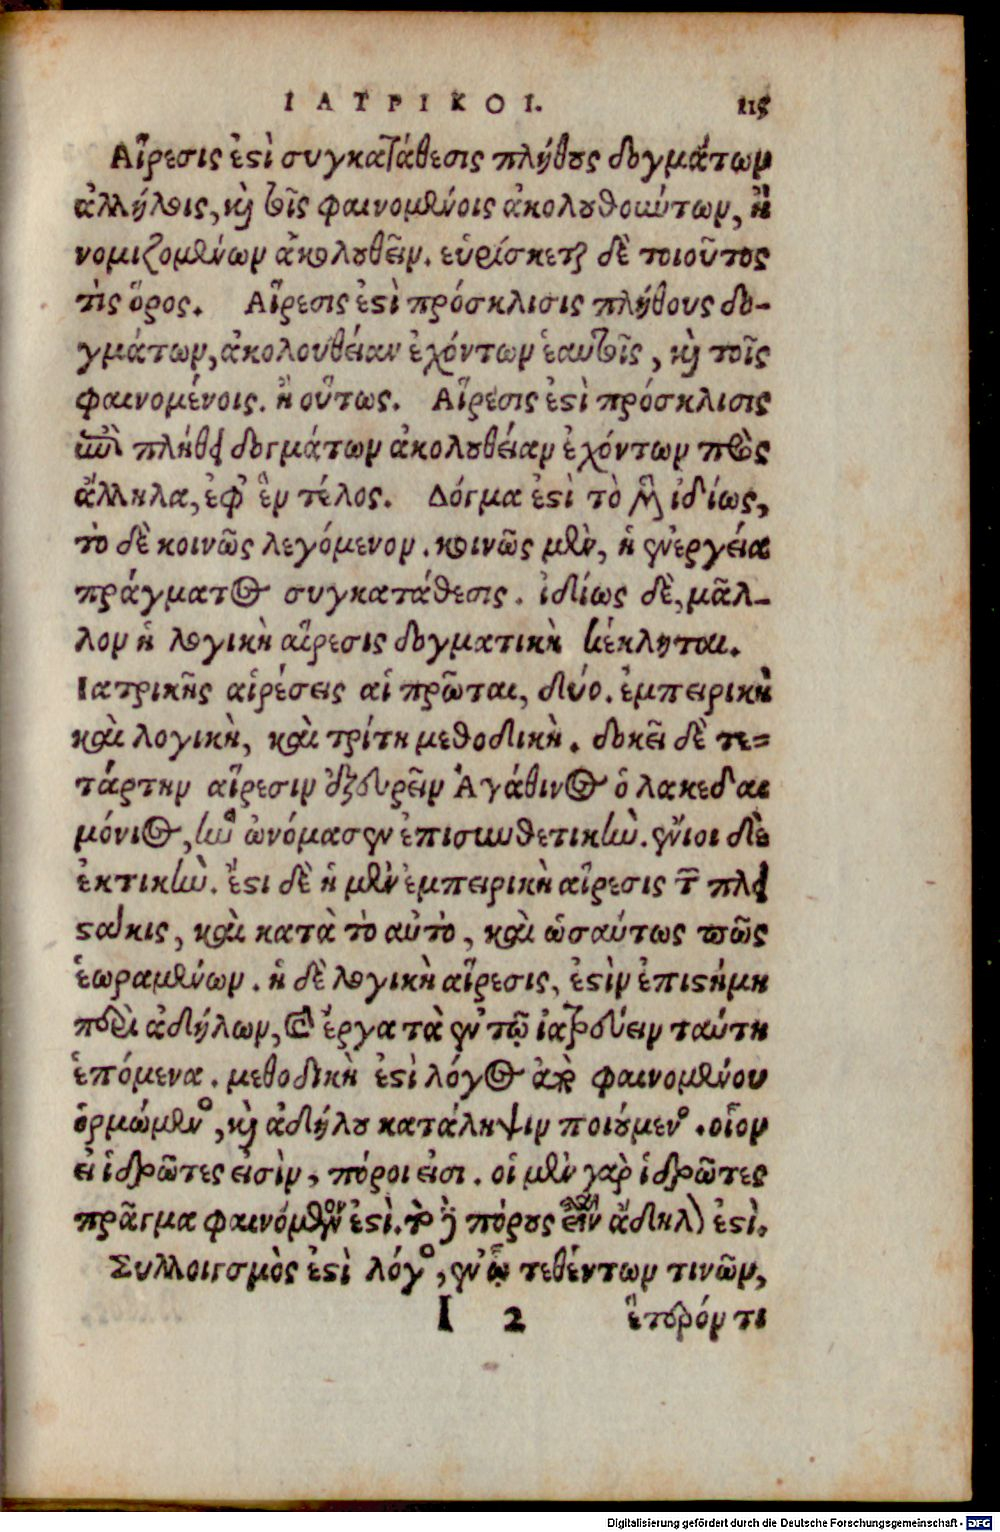 ΙΑΤΡΙΚΟΙ. 115
Αἵρεσις ἐϛὶ συγκατάθεσις πλήθους δογμάτων
ἀλλήλοις, καὶ τοῖς φαινομένοις ἀκολουθούντων, ἢ
νομιζομένων ἀκολουθεῖν. εὑρίσκεται δὲ τοιοῦτος
τὶς ὅρος. Αἵρεσις ἐϛὶ πρόσκλισις πλήθους δο-
γμάτων, ἀκολουθείαν ἐχόντων ἑαυτοῖς, καὶ τοῖς
φαινομένοις. ἢ οὕτως. Αἵρεσις ἐϛὶ πρόσκλισις
ἐπὶ πλήθει δογμάτων ἀκολουθείαν ἐχόντων πρὸς
ἄλληλα, ἐφ' ἓν τέλος. Δόγμα ἐϛὶ τὸ μὲν ἰδίως,
τὸ δὲ κοινῶς λεγόμενον. κοινῶς μὲν, ἡ ἐνεργεία
πράγματος συγκατάθεσις. ἰδίως δὲ, μᾶλ-
λον ἡ λογικὴ αἵρεσις δογματικὴ κέκληται.
Ιατρικῆς αἱρέσεις αἱ πρῶται, δύο. ἐμπειρικὴ
καὶ λογικὴ, καὶ τρίτη μεθοδικὴ. δοκεῖ δὲ τε-
τάρτην αἵρεσιν ἐξευρεῖν Ἀγάθινος ὁ λακεδαι
μόνιος, ἣν ὠνόμασεν ἐπισυνθετικὴν. ἔνιοι δὲ
ἑκτικὴν. ἔϛι δὲ ἡ μὲν ἐμπειρικὴ αἵρεσις τῶν πλει
ϛάκις, καὶ κατὰ τὸ αὐτὸ, καὶ ὡσαύτως πῶς
ἑωραμένων. ἡ δὲ λογικὴ αἵρεσις, ἐϛὶν ἐπιϛήμη
περὶ ἀδήλων, καὶ ἔργα τὰ ἐν τῷ ἰατρεύειν ταύτη
ἑπόμενα. μεθοδικὴ ἐϛὶ λόγος ἀπὸ φαινομένου
ὁρμώμενος, καὶ ἀδήλου κατάληψιν ποιούμενος. οἷον
εἰ ἱδρῶτες εἰσὶν, πόροι εἰσι. οἱ μὲν γὰρ ἱδρῶτες
πρᾶγμα φαινόμενόν ἐϛὶ. τὸ δὲ πόρους εἶναι ἄδηλόν ἐϛὶ.
Συλλοιγσμὸς ἐϛὶ λόγος, ἐν ᾧ τεθέντων τινῶν,
I 2 ἕτερόν τι
Digitalisierung gefördert durch die Deutsche Forschungsgemeinschaft - DFG